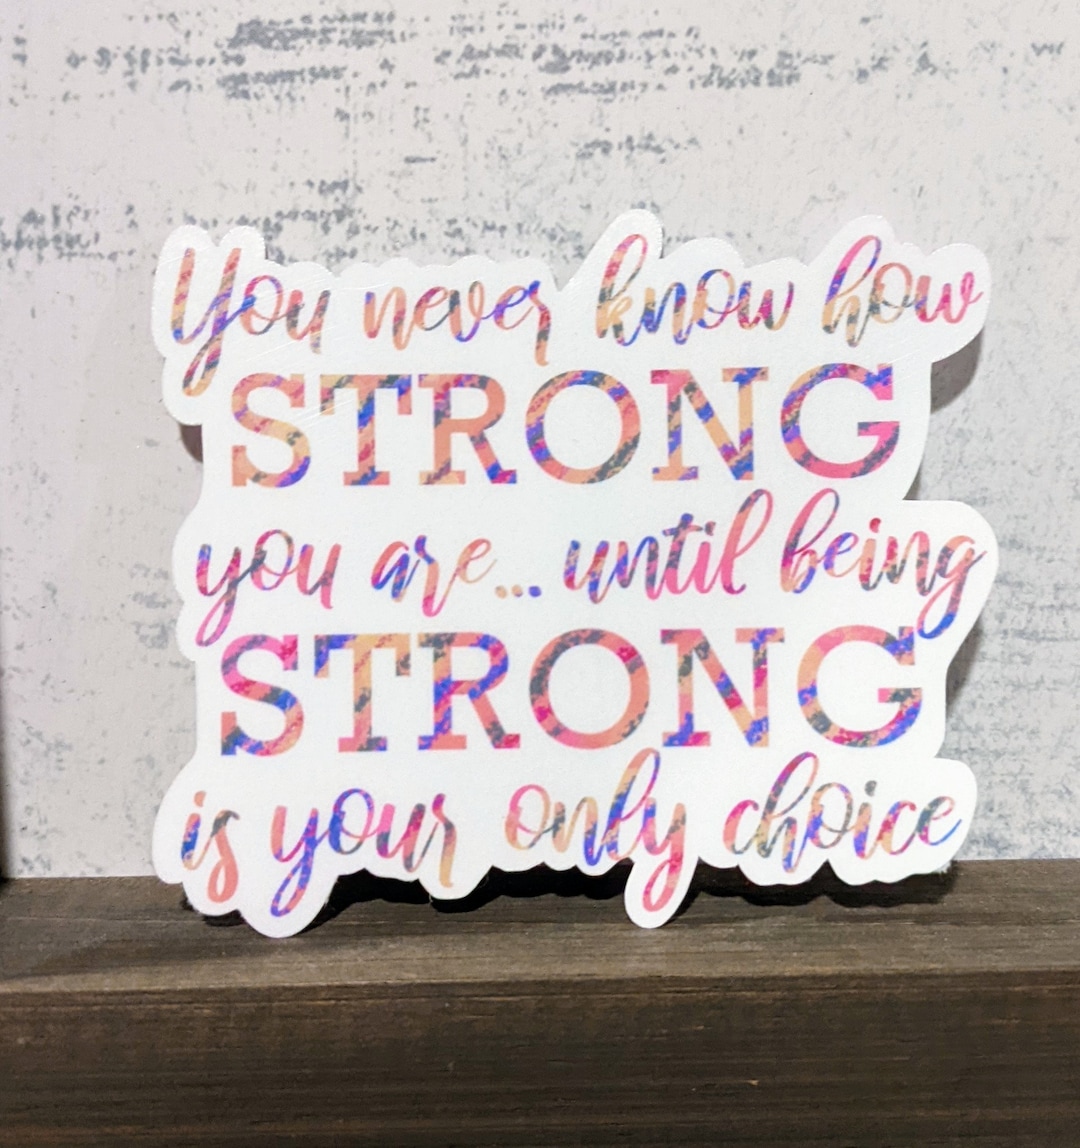 You never know how
STRONG
you are... until being
STRONG
is your only choice